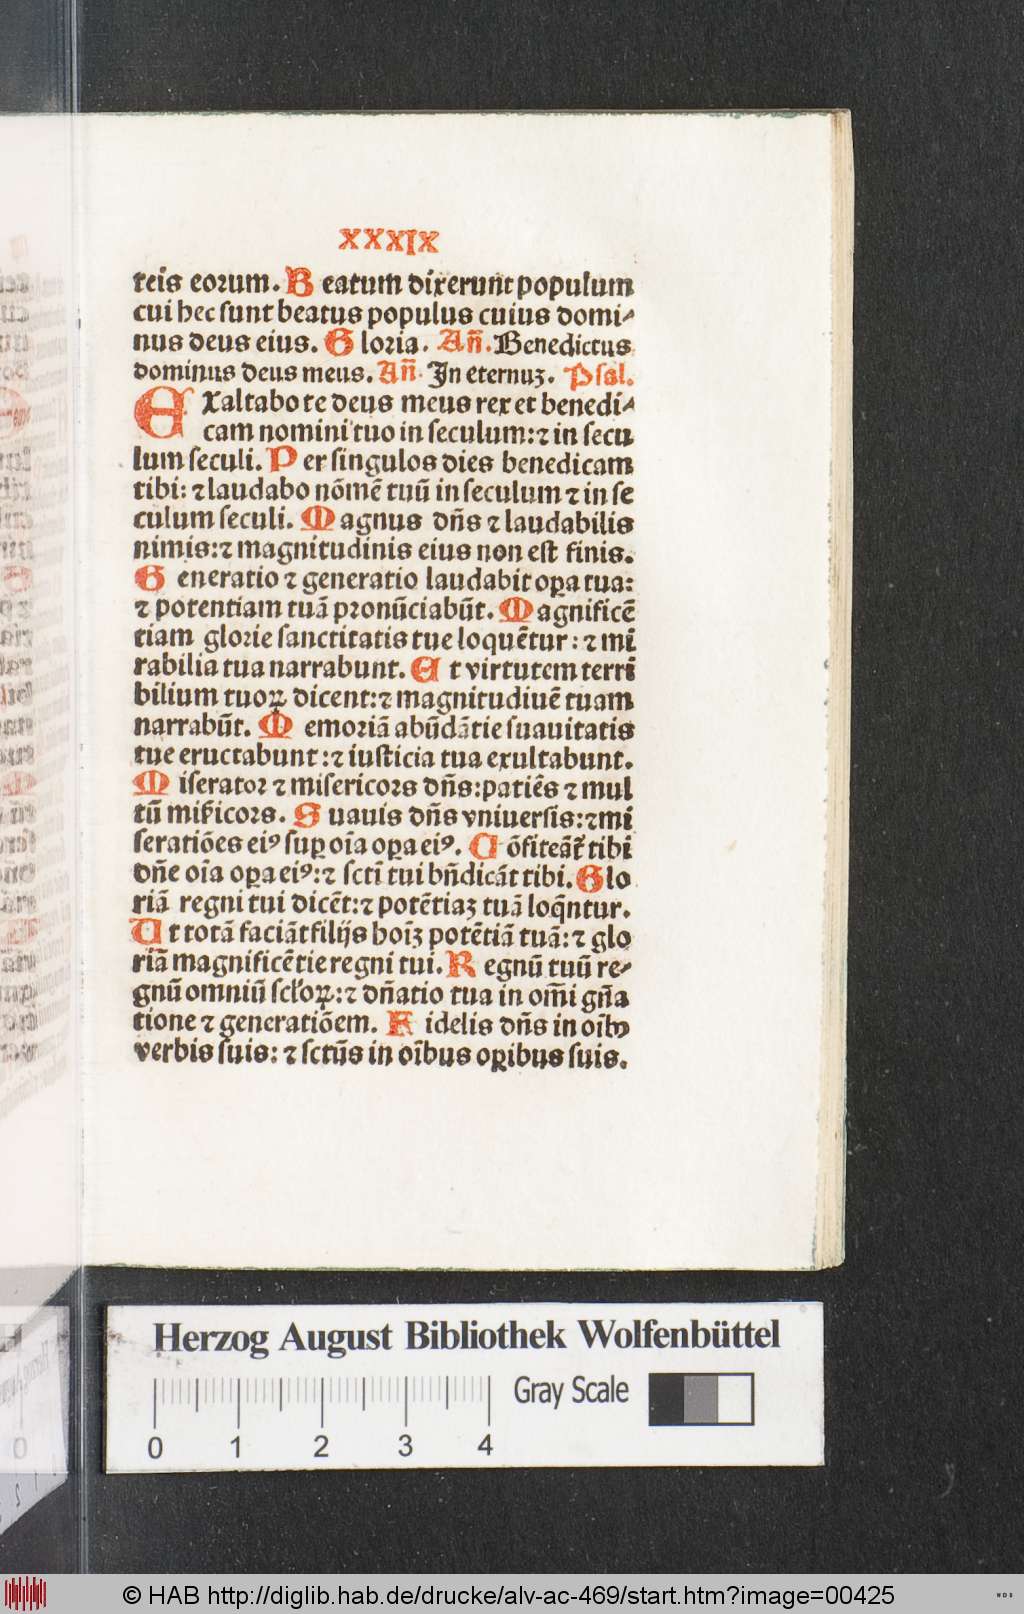 XXXIX
teis eorum. Beatum dixerunt populum
cui hec sunt beatus populus cuius domi⸗
nus deus eius. Gloria. Añ. Benedictus
dominus deus meus. Añ. In eternuꝫ. Psal.
Exaltabo te deus meus rex et benedi⸗
cam nomini tuo in seculum: ⁊ in secu
lum seculi. Per singulos dies benedicam
tibi: ⁊ laudabo nōmē tuū in seculum ⁊ in se
culum seculi. Magnus dñs ⁊ laudabilis
nimis: ⁊ magnitudinis eius non est finis.
Generatio ⁊ generatio laudabit oꝑa tua:
⁊ potentiam tuā pronūciabūt. Magnificē
tiam glorie sanctitatis tue loquētur: ⁊ mi
rabilia tua narrabunt. Et virtutem terri
bilium tuoꝝ dicent: ⁊ magnitudiuē tuam
narrabūt. Memoriā abūdātie suauitatis
tue eructabunt: ⁊ iusticia tua exultabunt.
Miserator ⁊ misericors dñs: patiēs ⁊ mul
tū mir̄icors. Suauis dñs vniuersis: ⁊ mi
seratiōes eiꝰ suꝑ oīa oꝑa eiꝰ. Cōfiteāt᷑ tibi
dñe oīa oꝑa eiꝰ: ⁊ sctī tui bñdicāt tibi. Glo
riā regni tui dicēt: ⁊ potētiaꝫ tuā loq̄ntur.
Ut totā faciāt filijs hoīꝫ potētiā tuā: ⁊ glo
riā magnificētie regni tui. Regnū tuū re⸗
gnū omniū scl̄oꝝ: ⁊ dñatio tua in om̄i gña
tione ⁊ generatiōem. Fidelis dñs in oīb
verbis suis: ⁊ sctūs in oībus oꝑibus suis.
Herzog August Bibliothek Wolfenbüttel
Gray Scale
0 1 2 3 4
© HAB http://diglib.hab.de/drucke/alv-ac-469/start.htm?image=00425